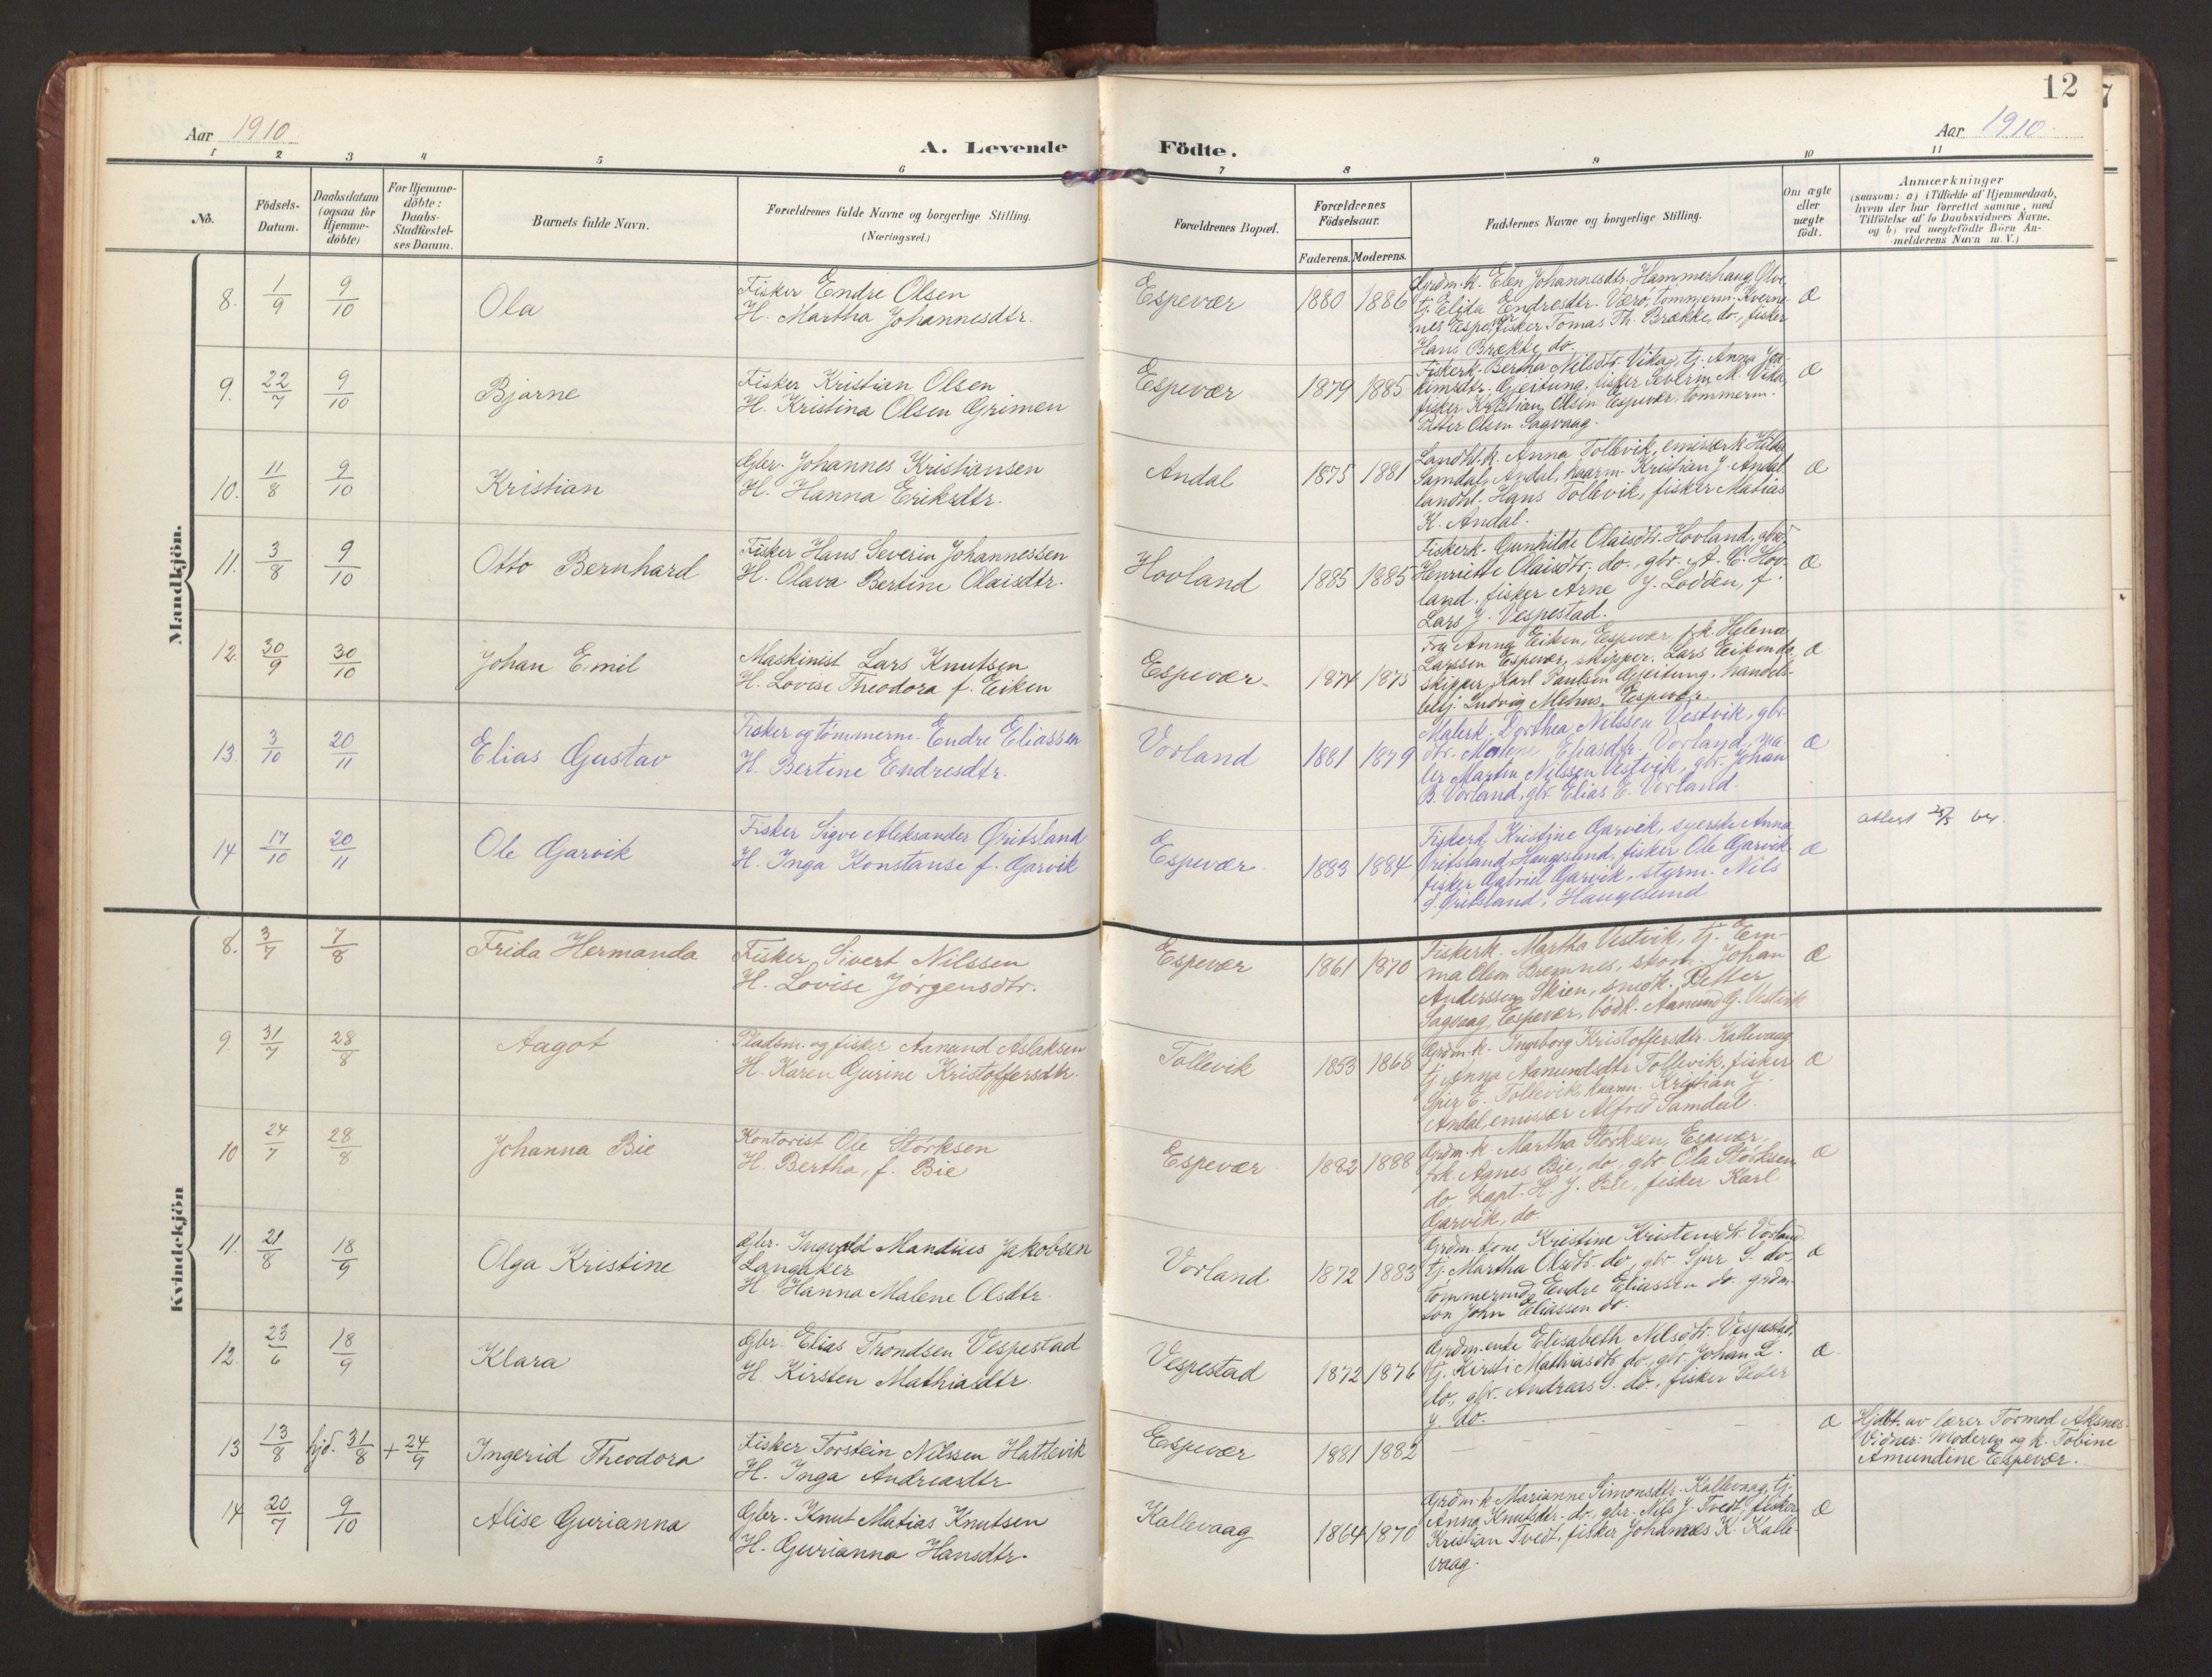 12
Aar 1910
A. Levende Födte.
Aar 1910
1 2 3 4 5 6 7 8 9 10 11
No.
Födsels-
Datum.
Daabsdatum
(ogsaa for
Hjemme-
döbte)
For Hjemme-
döbte:
Daabs-
Stadfæstel-
ses Datum.
Barnets fulde Navn.
Forældrenes fulde Navne og borgerlige Stilling.
(Næringsvei.)
Forældrenes Bopæl.
Forældrenes
Födselsaar.
Faderens. Moderens.
Faddernes Navne og borgerlige Stilling.
Om ægte
eller
uægte
födt.
Anmærkninger
(saasom: a) i Tilfælde af Hjemmedaab,
hvem der har forrettet samme, med
Tilföielse af to Daabsvidners Navne.
og b) ved uægtefödte Börn An-
melderens Navn m. V.)
Mandkjön.
8. 1/9 9/10 Ola
Fisker Endre Olsen
H. Martha Johannesdtr.
Espevær 1880 1886
Grdm.k. Elen Johannesdtr. Hammerhaug Ølve,
tj. Elida Endresdtr. Værø, tømmerm. Kverne-
nes Espevær, fisker Tomas Th. Brække, do., fisker
Hans Brække do.
Æ
9. 22/7 9/10 Bjarne
Fisker Kristian Olsen
H. Kristina Olsen Grimen
Espevær 1879 1885
Fiskerk. Bertha Nilsdtr. Vika, tj. Anna Joa-
kimsdtr. Gjeitung, fisker Severin M. Vika,
fisker Kristian Olsen Espevær, tømmerm.
Peter Olsen Sagvaag.
Æ
10. 11/8 9/10 Kristian
Gbr. Johannes Kristiansen
H. Hanna Eriksdtr.
Andal 1875 1881
Landhl.k. Anna Tollevik, emissærk. Hilda
Samdal, Andal, kaarm. Kristian J. Andal
landhl. Hans Tollevik, fisker Matias
K. Andal.
Æ
11. 3/8 9/10 Otto Bernhard
Fisker Hans Severin Johannessen
H. Olava Bertine Olaisdtr.
Hovland 1885 1885
Fiskerk. Gunhilde Olaisdtr. Hovland, gbr.
Henriette Olaisdtr. do., gbr. A. C. Hov-
land, fisker Arne J. Lodden, f.
Lars J. Vespestad.
Æ
12. 30/9 30/10 Johan Emil
Maskinist Lars Knutsen
H. Lovise Theodora f. Eiken
Espevær 1874 1875
Fru Anna Eiken, Espevær, frk. Helena
Larssen Espevær, skipper. Lars Eiken do.
skipper Karl Paulsen Gjeitung, handels-
betj. Ludvig Mehus, Espevær.
Æ
13. 3/10 20/11 Elias Gustav
Fisker og tømmerm. Endre Eliassen
H. Bertine Endresdtr.
Vorland 1881 1879
Malerk. Dorthea Nilssen Vestvik, gbr.
dtr. Malene Eliasdtr. Vorland, ma-
ler Martin Nilssen Vestvik, gbr. Johan
B. Vorland, gbr. Elias E. Vorland.
Æ
14 17/10 20/11 Ole Garvik
Fisker Sigve Aleksander Gritsland
H. Inga Konstanse f. Garvik
Espevær 1883 1884
Fiskerk. Kristine Garvik, syerske Anna
Gritsland, Haugesund, fisker Ole Garvik
fisker Gabriel Garvik, styrm. Nils
S. Gritsland, Haugesund
Æ
attest
Kvindekjön
8. 3/7 7/8 Frida Hermanda
Fisker Sivert Nilssen
H. Lovise Jørgensdtr.
Espevær 1861 1870
Fiskerk. Martha Vestvik, tj. Em-
ma Olsen Bremnes, skom. Johan
Anderssen Skien, snedk. Petter
Sagvaag, Espevær, bødk. Aamund G. Vestvik
Æ
9 31/7 28/8 Aagot
Pladsm. og fisker Aanund Aslaksen
H. Karen Gurine Kristoffersdtr.
Tollevik 1853 1868
Grdm.k. Ingeborg Kristoffersdtr. Kallevaag
tj. Anna Aamundsdtr Tollevik, fisker
Sjur E. Tollevik, kaarm. Kristian J.
Andal, emissær Alfred Samdal.
Æ
10 24/7 28/8 Johanna Bie
Kontorist Ole Størksen
H. Bertha, f. Bie
Espevær 1882 1888
Grdm.k. Martha Størksen, Espevær,
frk. Agnes Bie, do., gbr. Ola Størksen
do kapt. H. J. Bie, fisker Karl
Garvik, do.
Æ
11. 21/8 18/9 Olga Kristine
Gbr. Ingvald Mandius Jakobsen
Langaker
H. Hanna Malene Olsdtr.
Vorland 1872 1883
Grdm. kone Kristine Kristensdtr. Vorland
tj. Martha Olsdtr. do, gbr. Sjur S. do.
tømmermd. Endre Eliassen do. grdm.
søn John Eliassen do.
Æ
12. 23/6 18/9 Klara
Gbr. Elias Trondsen Vespestad
H. Kirsten Mathiasdtr.
Vespestad 1872 1876
Grdm. enke Elisabeth Nilsdtr. Vespestad,
tj. Kirsti Mathiasdtr do, gbr. Johan L.
do, gbr. Andreas S. do., fisker Peder
J. do.
Æ
13 13/8 hjd. 31/8 + 24/9 Ingerid Theodora
Fisker Torstein Nilssen Hattevik
H. Inga Andreasdtr
Espevær 1881 1882
— — — — —
Æ
Hjdbt. av lærer Tormod Aksnes.
Vidner: Moderen og k. Tobine
Amundine Espevær.
14 20/7 9/10 Alise Gurianna
Gbr. Knut Matias Knutsen
H. Gurianna Hansdtr.
Kallevaag 1864 1870
Grdm.k Marianne Simonsdtr. Kallevaag, tj.
Anna Knutsdtr. do., gbr. Nils J. Tvedt, fisker
Kristian Tvedt, fisker Johannes K. Kalle-
vaag.
Æ